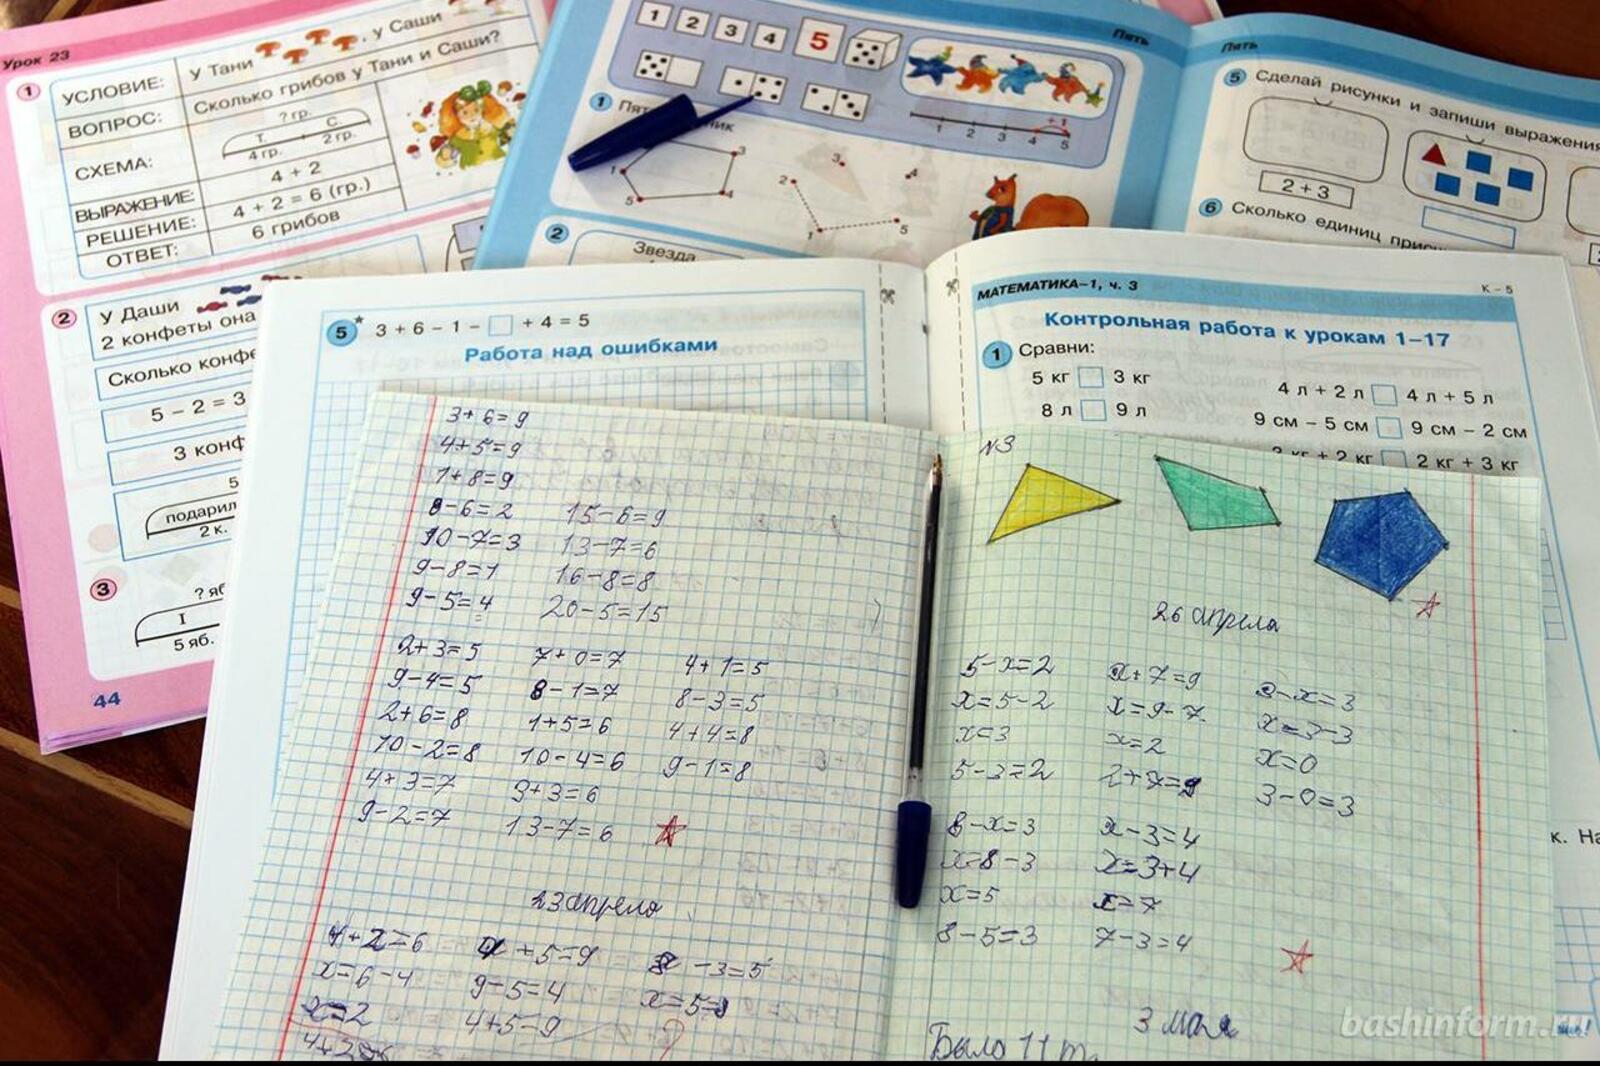 Урок 23
1
УСЛОВИЕ: У Тани , у Саши
ВОПРОС: Сколько грибов у Тани и Саши?
СХЕМА: ? гр. Т. С. 4 гр. 2 гр.
ВЫРАЖЕНИЕ: 4 + 2
РЕШЕНИЕ: 4 + 2 = 6 (гр.)
ОТВЕТ: 6 грибов
2
У Даши
2 конфеты она
Сколько конфе
5 – 2 = 3
3 конф
5
подарил
2 к.
3
? яб
I
5 яб.
44
Пять
1 2 3 4 5
+1
1 2 3 4 5
1
3
1
4
5
3
2
4
1
5
2
Звезда
Пять
5 Сделай рисунки и запиши выражения
2 + 3
6 Сколько единиц
5* 3 + 6 – 1 – + 4 = 5
Работа над ошибками
МАТЕМАТИКА–1, ч. 3
К – 5
Контрольная работа к урокам 1–17
1 Сравни:
5 кг 3 кг 4 л + 2 л 4 л + 5 л
8 л 9 л 9 см – 5 см 9 см – 2 см
3 кг + 2 кг 2 кг + 3 кг
к. На
3+6=9
4+5=9
1+8=9
8-6=2 15-6=9
10-7=3 13-7=6
9-8=1 16-8=8
9-5=4 20-5=15
2+3=5 7+0=7 4+1=5
9-4=5 8-1=7 8-3=5
2+6=8 1+5=6 4+4=8
10-2=8 10-4=6 9-1=8
4+3=7 9+3=6
9-2=7 13-7=6
23 апрела
4+x=6 x+5=9 x-3=5
x=6-4 9-5=4
x=2 4+5=9
№3
26 апрела
5-x=2 x+7=9 3-x=3
x=5-2 x=9-7 x=3-3
x=3 x=2 x=0
5-3=2 2+7=9 3-0=3
8-x=3 x-3=4
x=8-3 x=3+4
x=5 x=7
8-5=3 7-3=4
3 мая
Было 11 т.
bashinform.ru